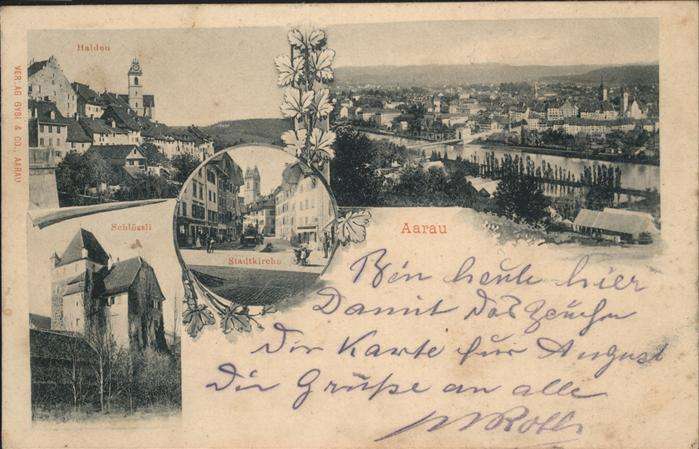 Halden
VERLAG GYSI & CO., AARAU
Schlössli
Stadtkirche
Aarau
Bin heute hier
Damit das Zeichen
Die Karte für August
Die Grüße an alle